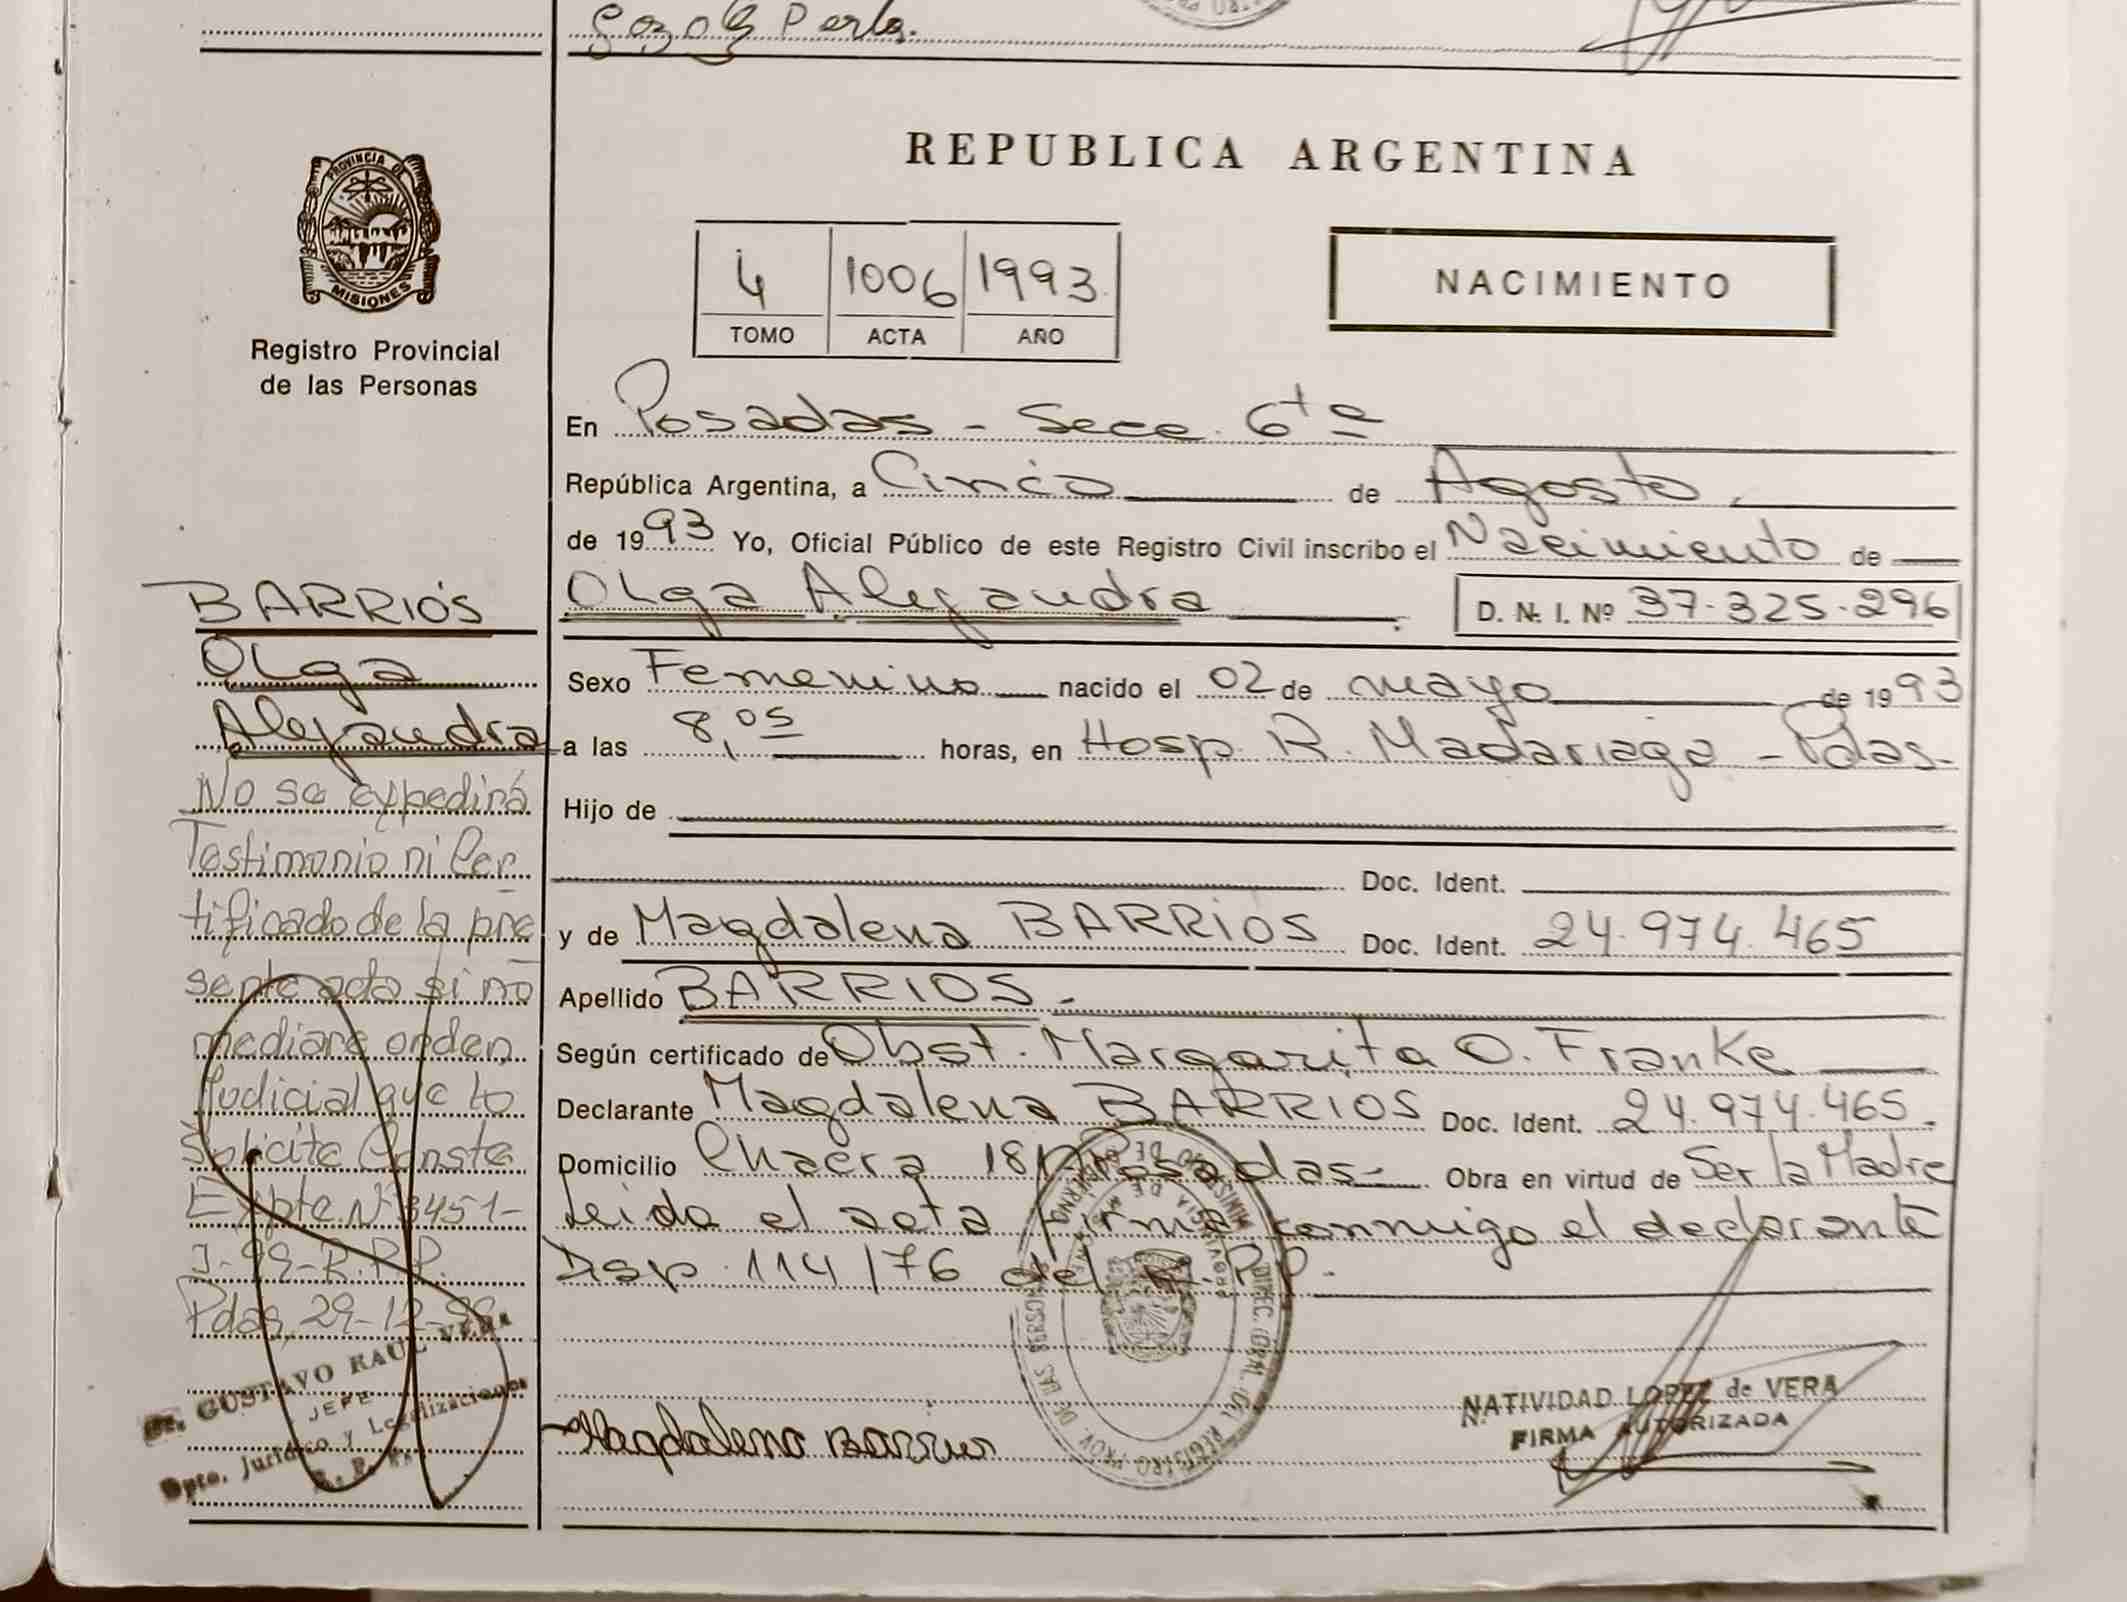 Perla.
PROVINCIA DE
MISIONES
Registro Provincial
de las Personas
REPUBLICA ARGENTINA
4 1006 1993
TOMO ACTA AÑO
NACIMIENTO
En Posadas - Secc. 6ta
República Argentina, a Cinco de Agosto
de 1993 Yo, Oficial Público de este Registro Civil inscribo el Nacimiento de
Olga Alejandra D. N. I. Nº 37.325.296
Sexo Femenino nacido el 02 de mayo de 1993
a las 8,05 horas, en Hosp. R. Madariaga - Pdas-
Hijo de
Doc. Ident.
y de Magdalena BARRIOS Doc. Ident. 24.974.465
Apellido BARRIOS.-
Según certificado de Obst. Margarita O. Franke
Declarante Magdalena BARRIOS Doc. Ident. 24.974.465.
Domicilio Chacra Posadas- Obra en virtud de Ser la Madre
Leida el acta firma conmigo el declarante
Disp. 114/76 del R.P.P.
Magdalena Barrios
NATIVIDAD LOPEZ de VERA
FIRMA AUTORIZADA
BARRIOS
Olga
Alejandra
No se expedirá
Testimonio ni Cer
tificado de la pre
sente acta si no
mediare orden
Judicial que lo
Solicite Conste
Expte Nº 3451-
J-99-R.P.P.
Pdas, 29-12-99
GUSTAVO RAUL VERA
JEFE
Dpto. Jurídico y Legalizaciones
R. P. P.